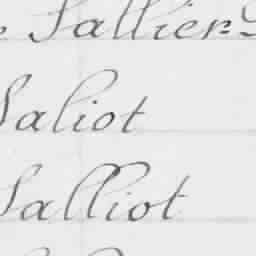 Sallier
Saliot
Salliot